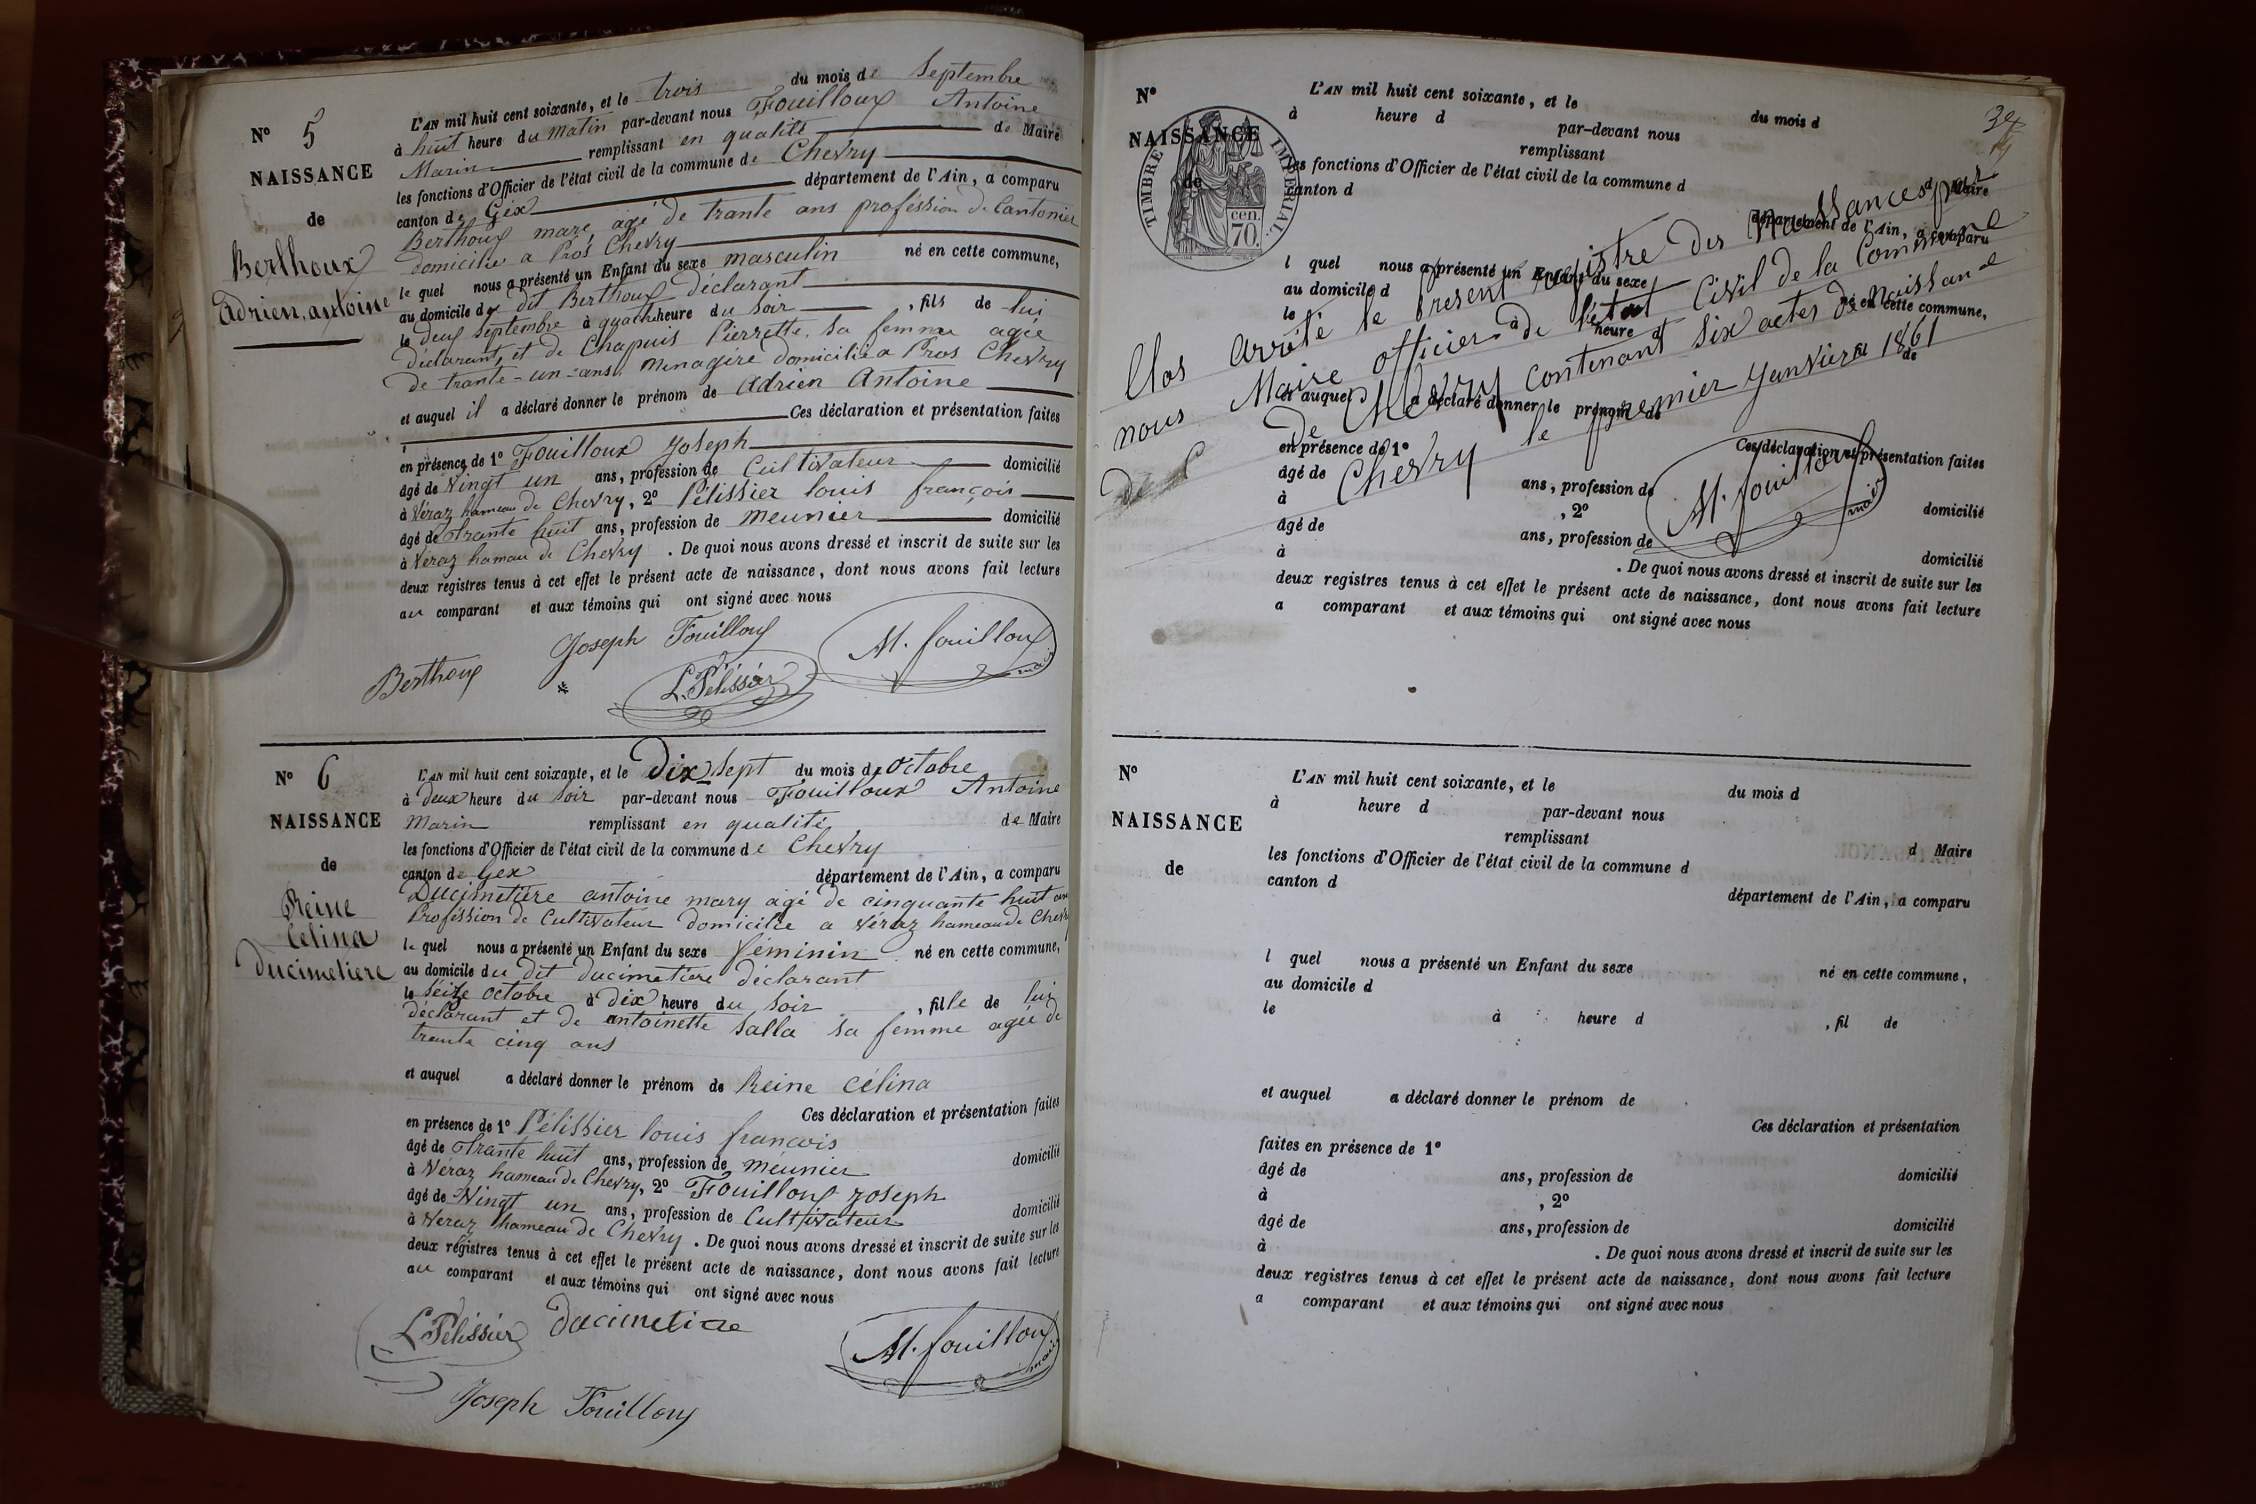 N° 5
NAISSANCE
de
Berthoux
Adrien, antoine
L'AN mil huit cent soixante, et le trois du mois de Septembre
à huit heure du matin par-devant nous Fouilloux Antoine
Marin remplissant en qualité de Maire
les fonctions d'Officier de l'état civil de la commune de Chevry
canton de Gex département de l'Ain, a comparu
Berthoux marc, agé de trante ans profession de Cantonier
domicilie a Prôs Chevry
le quel nous a présenté un Enfant du sexe masculin né en cette commune,
au domicile du dit Berthoux déclarant
le deux Septembre à quatre heure du soir , fils de lui
déclarant, et de Chapuis Pierrette, sa femme agée
de trante-un-ans, menagère domiciliée a Pros Chevry
et auquel il a déclaré donner le prénom de Adrien Antoine
Ces déclaration et présentation faites
en présence de 1° Fouilloux Joseph
âgé de Vingt un ans, profession de Cultivateur domicilié
à Véraz hameau de Chevry, 2° Pélissier louis françois
âgé de trante huit ans, profession de meunier domicilié
à Véraz hamau de Chevry . De quoi nous avons dressé et inscrit de suite sur les
deux registres tenus à cet effet le présent acte de naissance, dont nous avons fait lecture
au comparant et aux témoins qui ont signé avec nous
Joseph Fouilloux
M. fouilloux
maire
Berthoux
L. Pélissier
N° 6
NAISSANCE
de
Reine
Celina
Ducimetiere
L'AN mil huit cent soixante, et le Dix Sept du mois de Octobre
à deux heure du soir par-devant nous Fouilloux Antoine
Marin remplissant en qualité de Maire
les fonctions d'Officier de l'état civil de la commune de Chevry
canton de Gex département de l'Ain, a comparu
Ducimetière antoine mary agé de cinquante huit ans
Profession de Cultivateur domicilie a Véraz hameau de Chevry
le quel nous a présenté un Enfant du sexe féminin né en cette commune,
au domicile du dit ducimetière déclarant
le séize octobre à dix heure du soir , fille de lui
déclarant et de antoinette Salla sa femme agée de
trante cinq ans
et auquel a déclaré donner le prénom de Reine Célina
Ces déclaration et présentation faites
en présence de 1° Pélissier louis françois
âgé de trante huit ans, profession de méunier domicilié
à Véraz hameau de Chevry, 2° Fouilloux Joseph
âgé de Vingt un ans, profession de Cultivateur domicilié
à Veraz hameau de Chevry . De quoi nous avons dressé et inscrit de suite sur les
deux registres tenus à cet effet le présent acte de naissance, dont nous avons fait lecture
au comparant et aux témoins qui ont signé avec nous
L. Pélissier ducimetiere
M. fouilloux
maire
Joseph Fouilloux
N°
NAISSANCE
de
TIMBRE IMPERIAL
cen.
70.
L'AN mil huit cent soixante, et le du mois d
à heure d par-devant nous
remplissant d Maire
les fonctions d'Officier de l'état civil de la commune d
canton d département de l'Ain, a comparu
l quel nous a présenté un Enfant du sexe né en cette commune,
au domicile d
le à heure d , fil de
et auquel a déclaré donner le prénom de
Ces déclaration et présentation faites
en présence de 1°
âgé de ans, profession de domicilié
à , 2°
âgé de ans, profession de domicilié
à . De quoi nous avons dressé et inscrit de suite sur les
deux registres tenus à cet effet le présent acte de naissance, dont nous avons fait lecture
a comparant et aux témoins qui ont signé avec nous
Clos arrété le present registre des Naissances par
nous Maire officier de l'état Civil de la Commune
de Chevry contenant six actes de naissance
Chevry le premier Janvier 1861
M. fouilloux
maire
N°
NAISSANCE
de
L'AN mil huit cent soixante, et le du mois d
à heure d par-devant nous
remplissant d Maire
les fonctions d'Officier de l'état civil de la commune d
canton d département de l'Ain, a comparu
l quel nous a présenté un Enfant du sexe né en cette commune,
au domicile d
le à heure d , fil de
et auquel a déclaré donner le prénom de
Ces déclaration et présentation
faites en présence de 1°
âgé de ans, profession de domicilié
à , 2°
âgé de ans, profession de domicilié
à . De quoi nous avons dressé et inscrit de suite sur les
deux registres tenus à cet effet le présent acte de naissance, dont nous avons fait lecture
a comparant et aux témoins qui ont signé avec nous